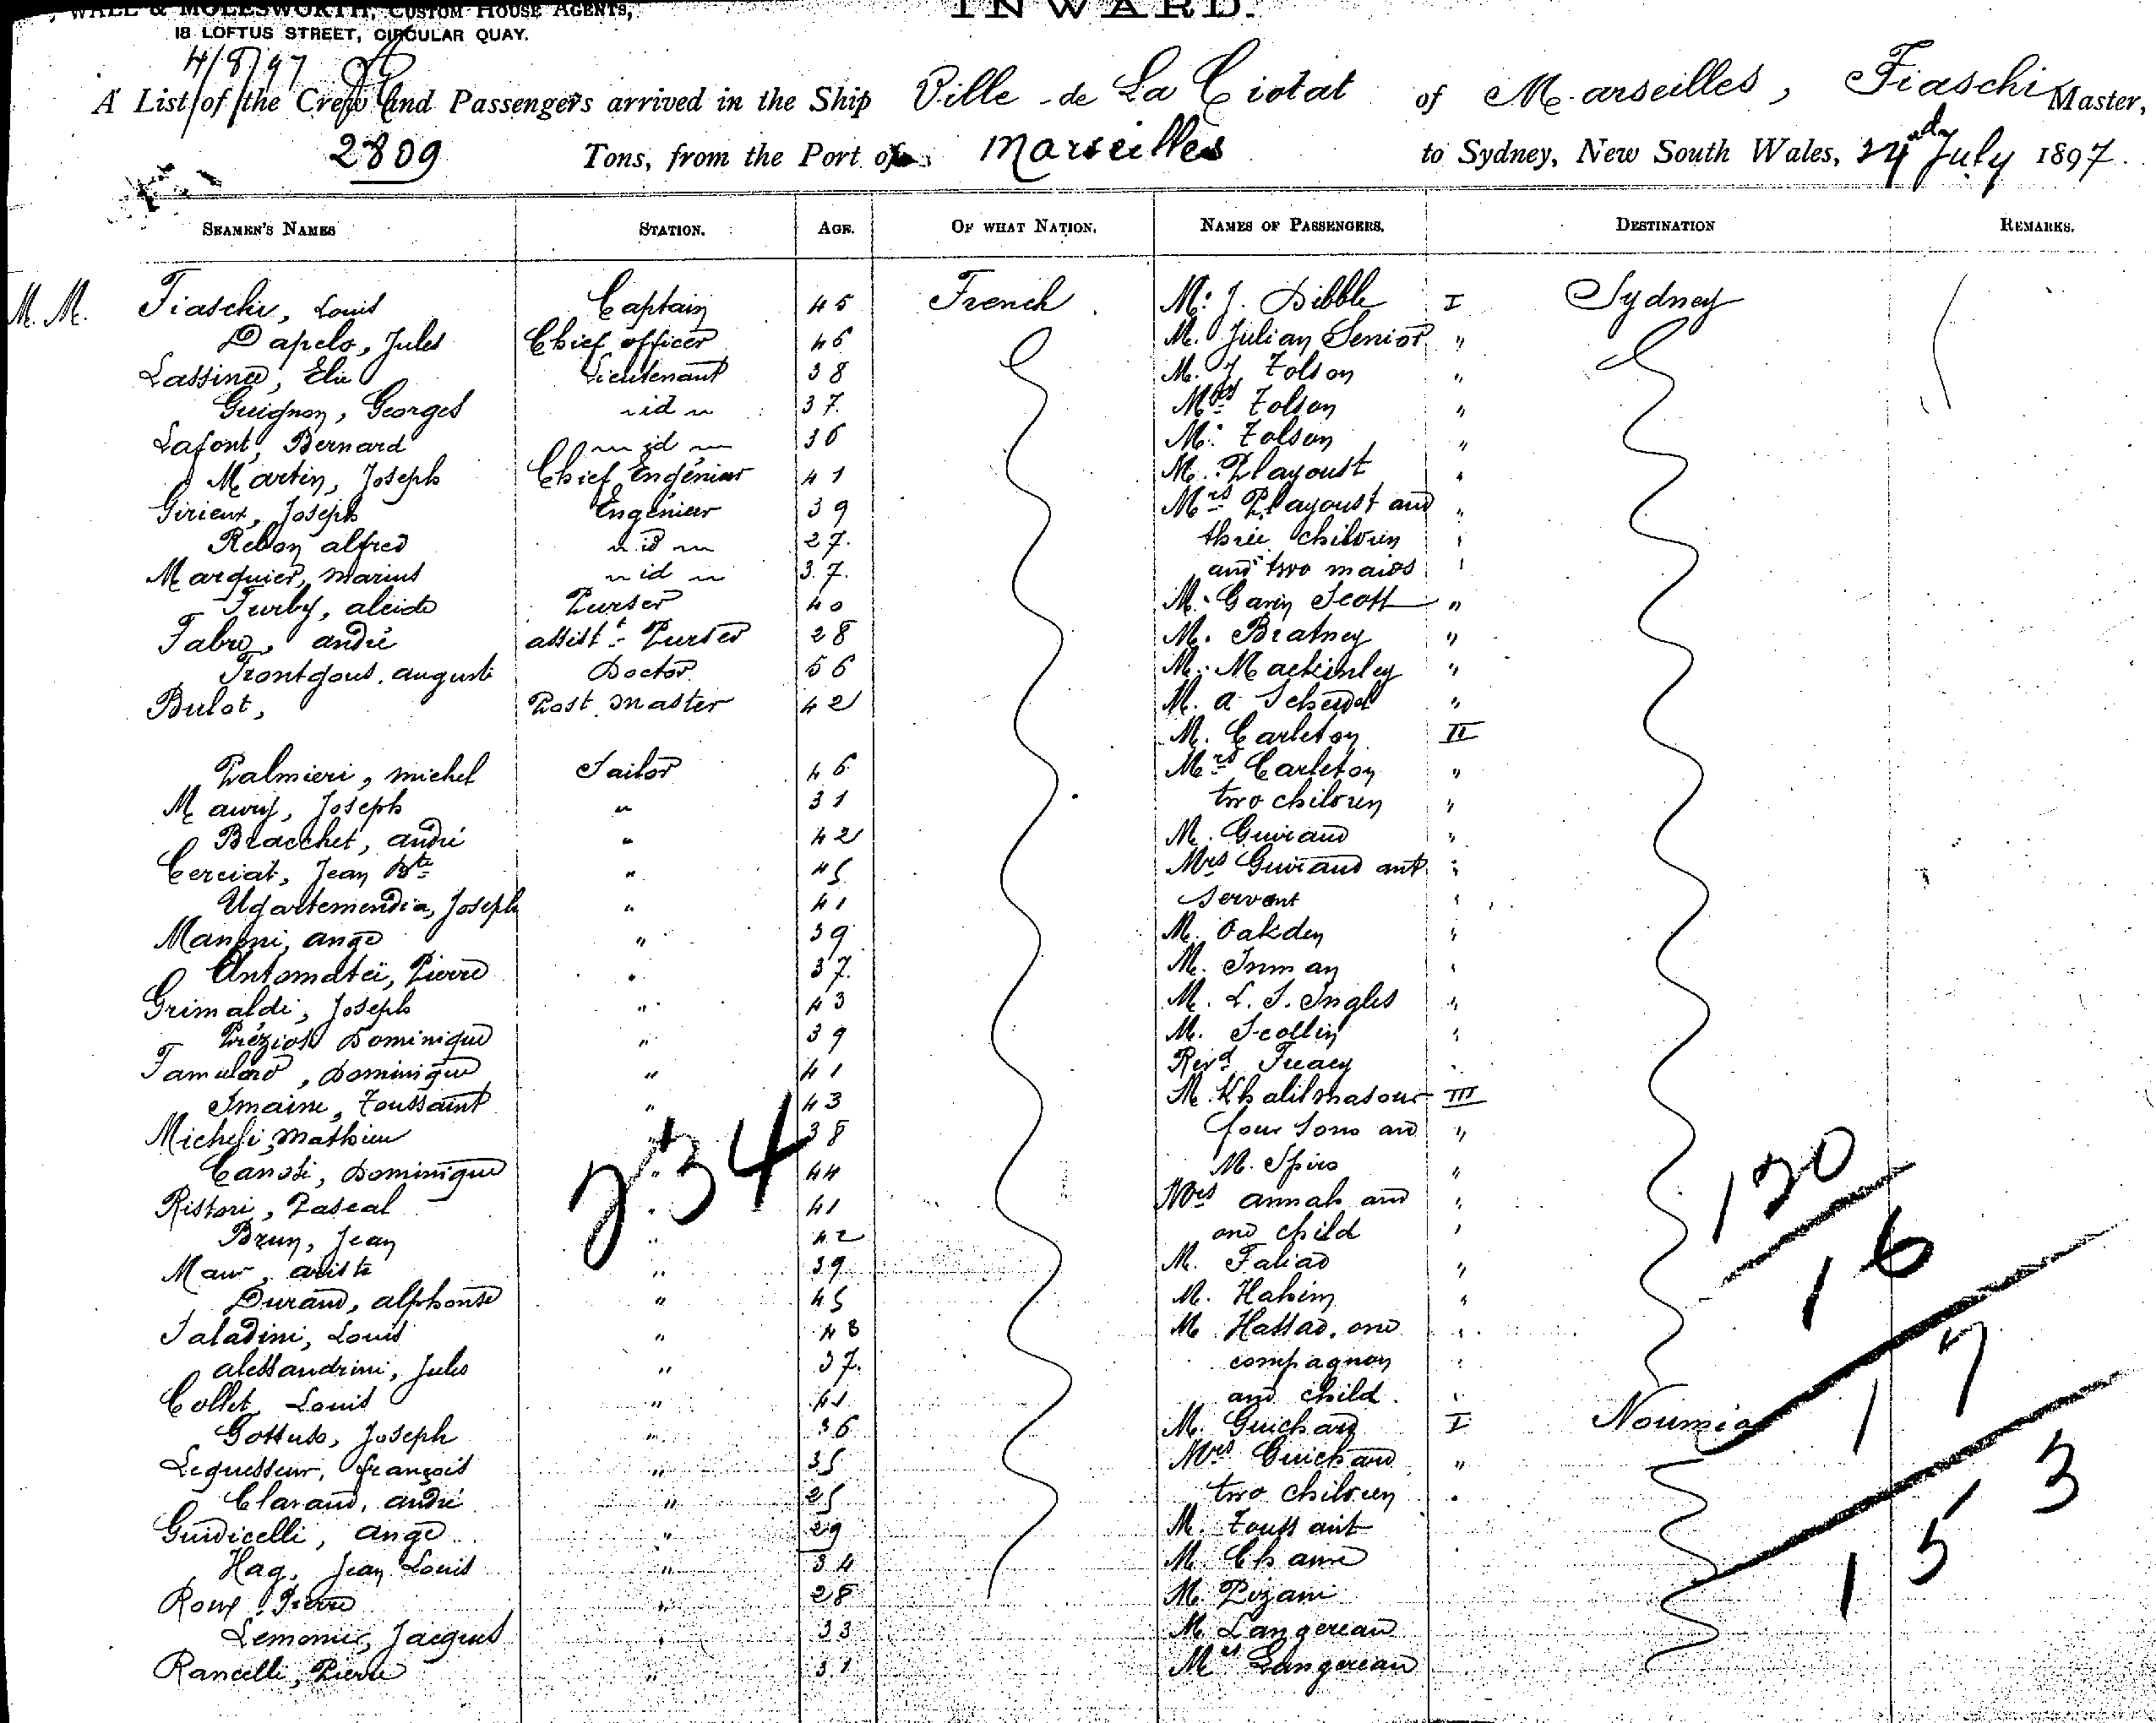 WALL & MOLESWORTH, CUSTOM HOUSE AGENTS,
18 LOFTUS STREET, CIRCULAR QUAY.
INWARD.
4/8/97
A List of the Crew and Passengers arrived in the Ship Ville de La Ciotat of Marseilles, Fiaschi Master,
2809 Tons, from the Port of Marseilles to Sydney, New South Wales, 24 July 1897.
SEAMEN'S NAMES STATION. AGE. OF WHAT NATION. NAMES OF PASSENGERS. DESTINATION REMARKS.
M. M. Fiaschi, Louis Captain 45 French M. J. Dibble I Sydney
Dapelo, Jules Chief officer 46 M. Julian Senior "
Lassine, Elie Lieutenant 38 M. J. Tolson "
Guignon, Georges id 37. Mrs Tolson "
Lafont, Bernard id 36 M. Tolson "
Martin, Joseph Chief Engénieer 41 M. Playoust "
Girieux, Joseph Engénieer 39 Mrs Playoust and "
Rebon alfred id 27. three children "
Marquier, marius id 37. and two maids "
Furby, alcide Purser 40 M. Gavin Scott "
Fabre, andré assistt Purser 28 M. Bratney "
Trontgous, auguste Doctor 56 M. Mackinley "
Bulot, Post master 42 M. a "
M. Carleton II
Palmieri, michel Sailor 46 Mrs Carleton "
Maury, Joseph " 31 two children "
Bracchet, andré " 42 M. Guiraud "
Cerciat, Jean Bte " 45 Mrs Guiraud ant "
Ugartemendia, Joseph " 41 servant "
Mannni, ange " 39 M. Oakden "
Antomateï, Pierre " 37. M. Inman "
Grimaldi, Joseph " 43 M. L. S. Ingles "
Prézios Dominique " 39 M. Scollin "
Dominique " 41 Revd Treacy "
Imaine, Toussaint " 43 M. Khalil masour III
Micheli, Mathieu " 38 four sons and "
Canoti, Dominique " 44 M. Spiro "
Ristori, Pascal " 41 Mrs annah and "
Brun, Jean " 42 one child "
Maur, ariste " 39 M. Faliad "
Durand, alphonse " 45 M. Hakim "
Saladini, Louis " 43 M. Hassad, one "
alessandrini, Jules " 37. compagnon "
Collet, Louis " 41 and child. "
Gottuso, Joseph " 36 M. Guichard I Noumia
Lequesseur, françois " 35 Mrs Guichard "
Claraud, andré " 25 two children "
Guidicelli, ange " 29 M. Toussaint
Hag, Jean Louis " 34 M.
Roux Pierre " 28 M. Pizani
Lemonier, Jacques " 33 M. Langereau
Rancelli, Pierre " 31 Mrs Langereau
234
130
16
17
15 3